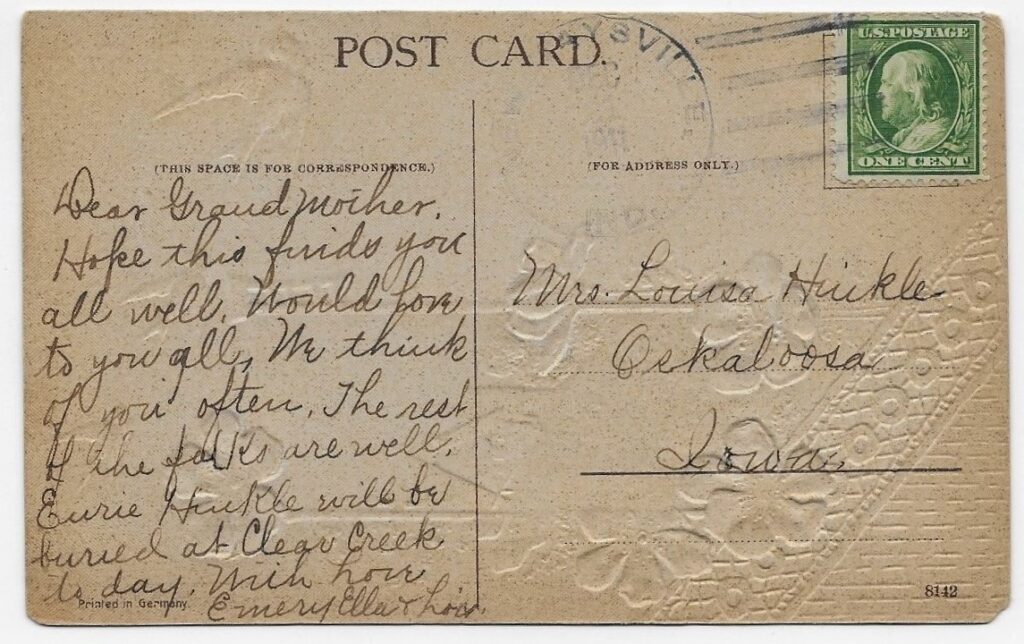 POST CARD.
U.S. POSTAGE
ONE CENT
YSVILLE
(THIS SPACE IS FOR CORRESPONDENCE.)
(FOR ADDRESS ONLY.)
Dear Grand Mother.
Hope this finds you
all well. Would love
to you all, We think
of you often. The rest
of the folks are well.
Hinkle will be
buried at Clear Creek
to day. With love
Emery Ella &
Mrs. Louisa Hinkle
Oskaloosa
Iowa.
Printed in Germany.
8142